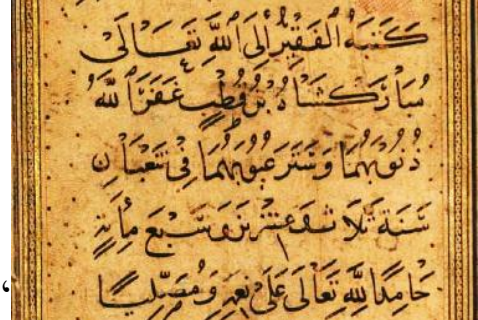 كَتَبَهُ الفَقِيرُ إلَى اللَّهِ تَعَالَى
مُبَارَكشَاهُ بْنُ قُطْبٍ غَفَرَ اللَّهُ
ذُنُوبَهُمَا وَسَتَرَ عُيُوبَهُمَا فِي شَعْبَانِ
سَنَةَ ثَلَاث وَعِشْرِينَ وَسَبْعَ مِأيةٍ
حَامِدًا لِلَّهِ تَعَالَى عَلَى نِعَمِهِ وَمُصَلِّيًا
‘